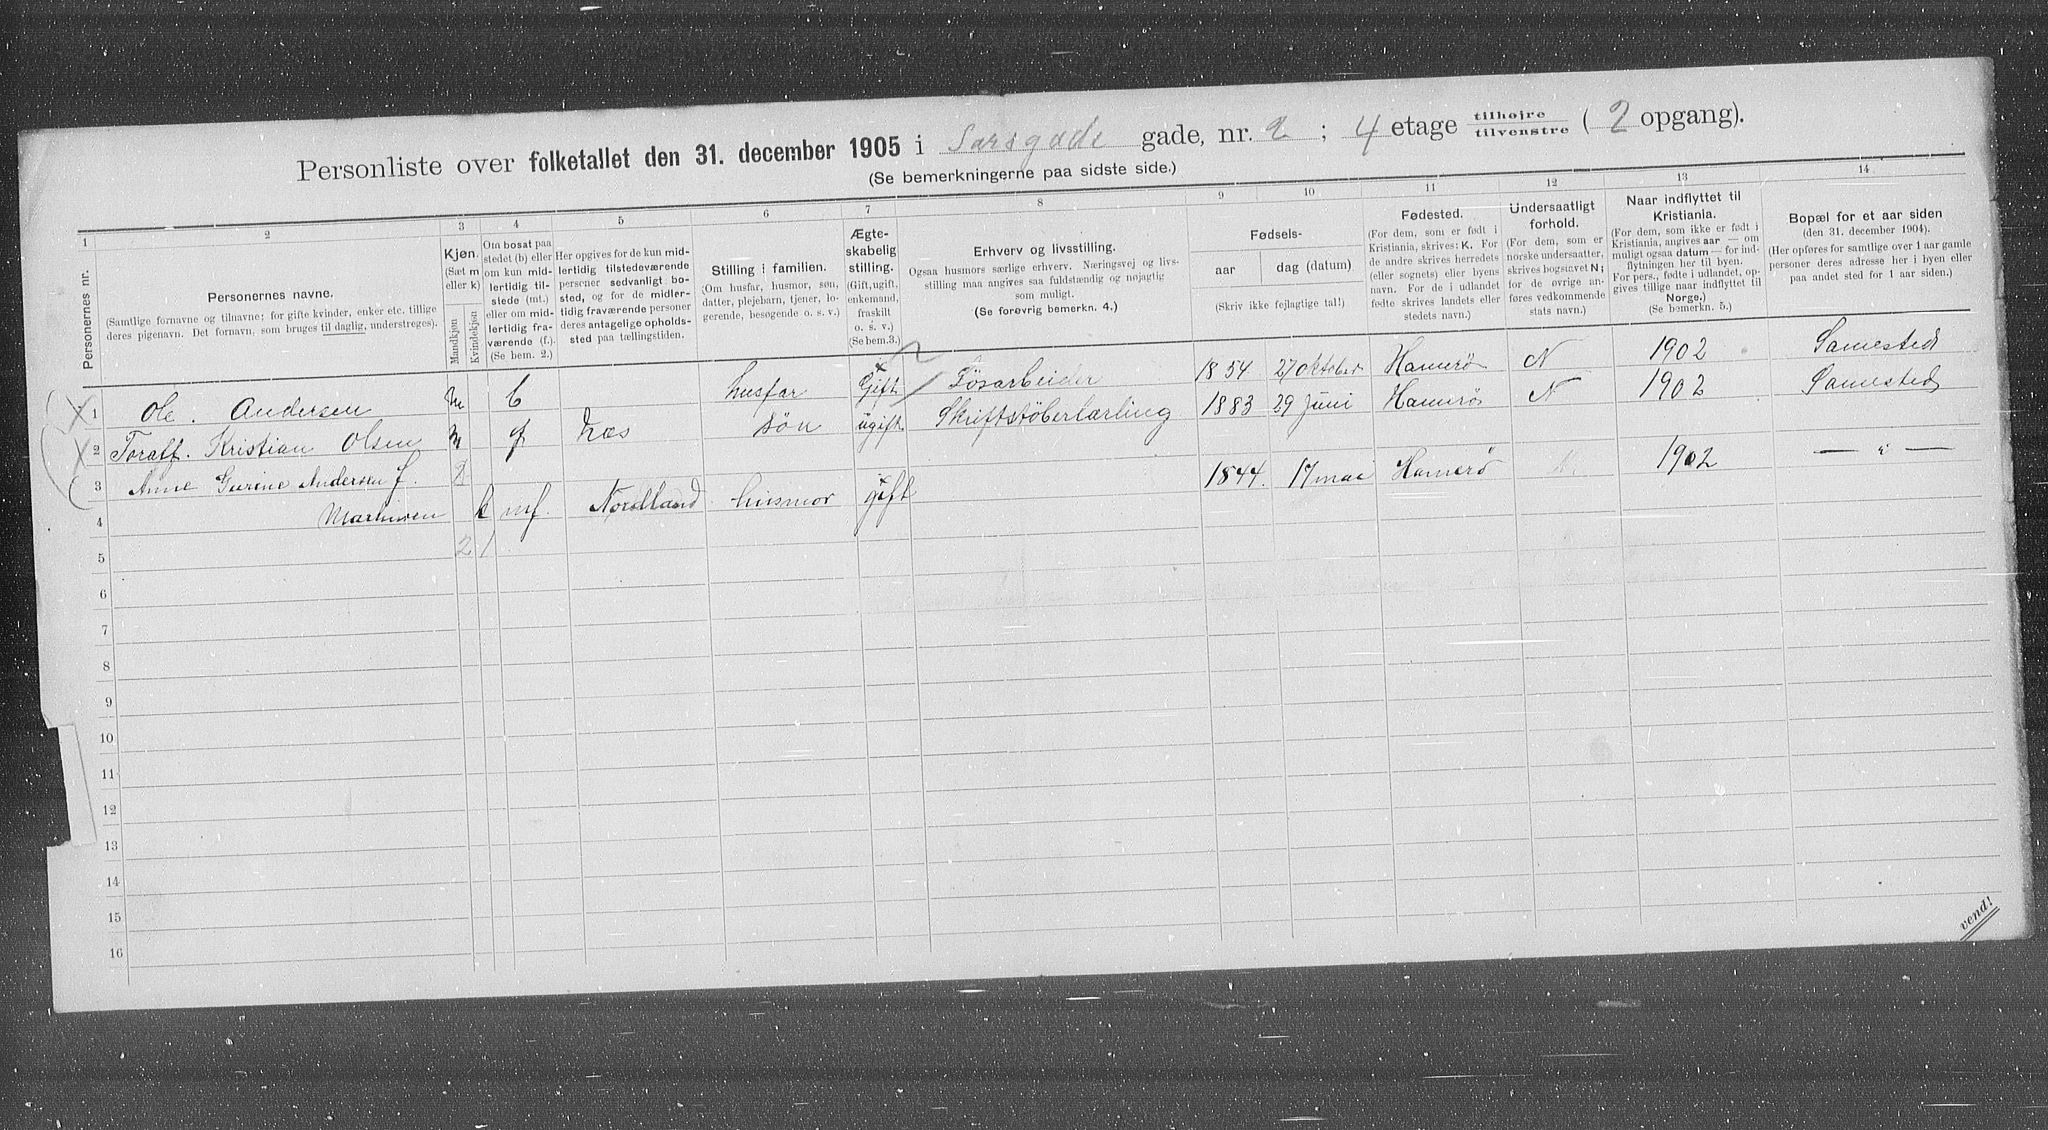 Personliste over folketallet den 31. december 1905 i Sarsgade gade, nr. 2 ; 4 etage tilhøire tilvenstre ( 2 opgang).
(Se bemerkningerne paa sidste side.)
1 2 3 4 5 6 7 8 9 10 11 12 13 14
Personernes nr.
Personernes navne.
(Samtlige fornavne og tilnavne; for gifte kvinder, enker etc. tillige
deres pigenavn. Det fornavn, som bruges til daglig, understreges).
Kjøn.
(Sæt m
eller k)
Mandkjøn
Kvindekjøn
Om bosat paa
stedet (b) eller
om kun mid-
lertidig til-
stede (mt.)
eller om mid-
lertidig fra-
værende (f.).
(Se bem. 2.)
Her opgives for de kun mid-
lertidig tilstedeværende
personer sedvanligt bo-
sted, og for de midler-
tidig fraværende personer
deres antagelige opholds-
sted paa tællingstiden.
Stilling i familien.
(Om husfar, husmor, søn,
datter, plejebarn, tjener, lo-
gerende, besøgende o. s. v.)
Ægte-
skabelig
stilling.
(Gift, ugift,
enkemand,
fraskilt
o. s. v.)
(Se bem.3.)
Erhverv og livsstilling.
Ogsaa husmors særlige erhverv. Næringsvej og livs-
stilling maa angives saa fuldstændig og nøjagtig
som muligt.
(Se forøvrig bemerkn. 4.)
Fødsels-
aar
dag (datum)
(Skriv ikke fejlagtige tal!)
Fødested.
(For dem, som er født i
Kristiania, skrives: K. For
de andre skrives herredets
(eller sognets) eller byens
navn. For de i udlandet
fødte skrives landets eller
stedets navn.)
Undersaatligt
forhold.
(For dem, som er
norske undersaatter,
skrives bogstavet N;
for de øvrige an-
føres vedkommende
stats navn.)
Naar indflyttet til
Kristiania.
(For dem, som ikke er født i
Kristiania, angives aar — om
muligt ogsaa datum — for ind-
flytningen her til byen.
For pers., fødte i udlandet, op-
gives tillige naar indflyttet til
Norge.)
(Se bemerkn. 5.)
Bopæl for et aar siden
(den 31. december 1904).
(Her opføres for samtlige over 1 aar gamle
personer deres adresse her i byen eller
paa andet sted for 1 aar siden.)
1 Ole Andersen m b husfar Gift Løsarbeider 1854 27 oktober Hamerö N 1902 Samested
2 Toralf. Kristian Olsen m næs søn ugift Skriftstöberlærling 1883 29 Juni Hamerö N 1902 Samested
3 Anne Gurine Andersen f.
Martinsen k mf. Nordland husmor gift 1844. 17 mai Hamerö N. 1902 — " —
4
5 2 1
6
7
8
9
10
11
12
13
14
15
16
vend!